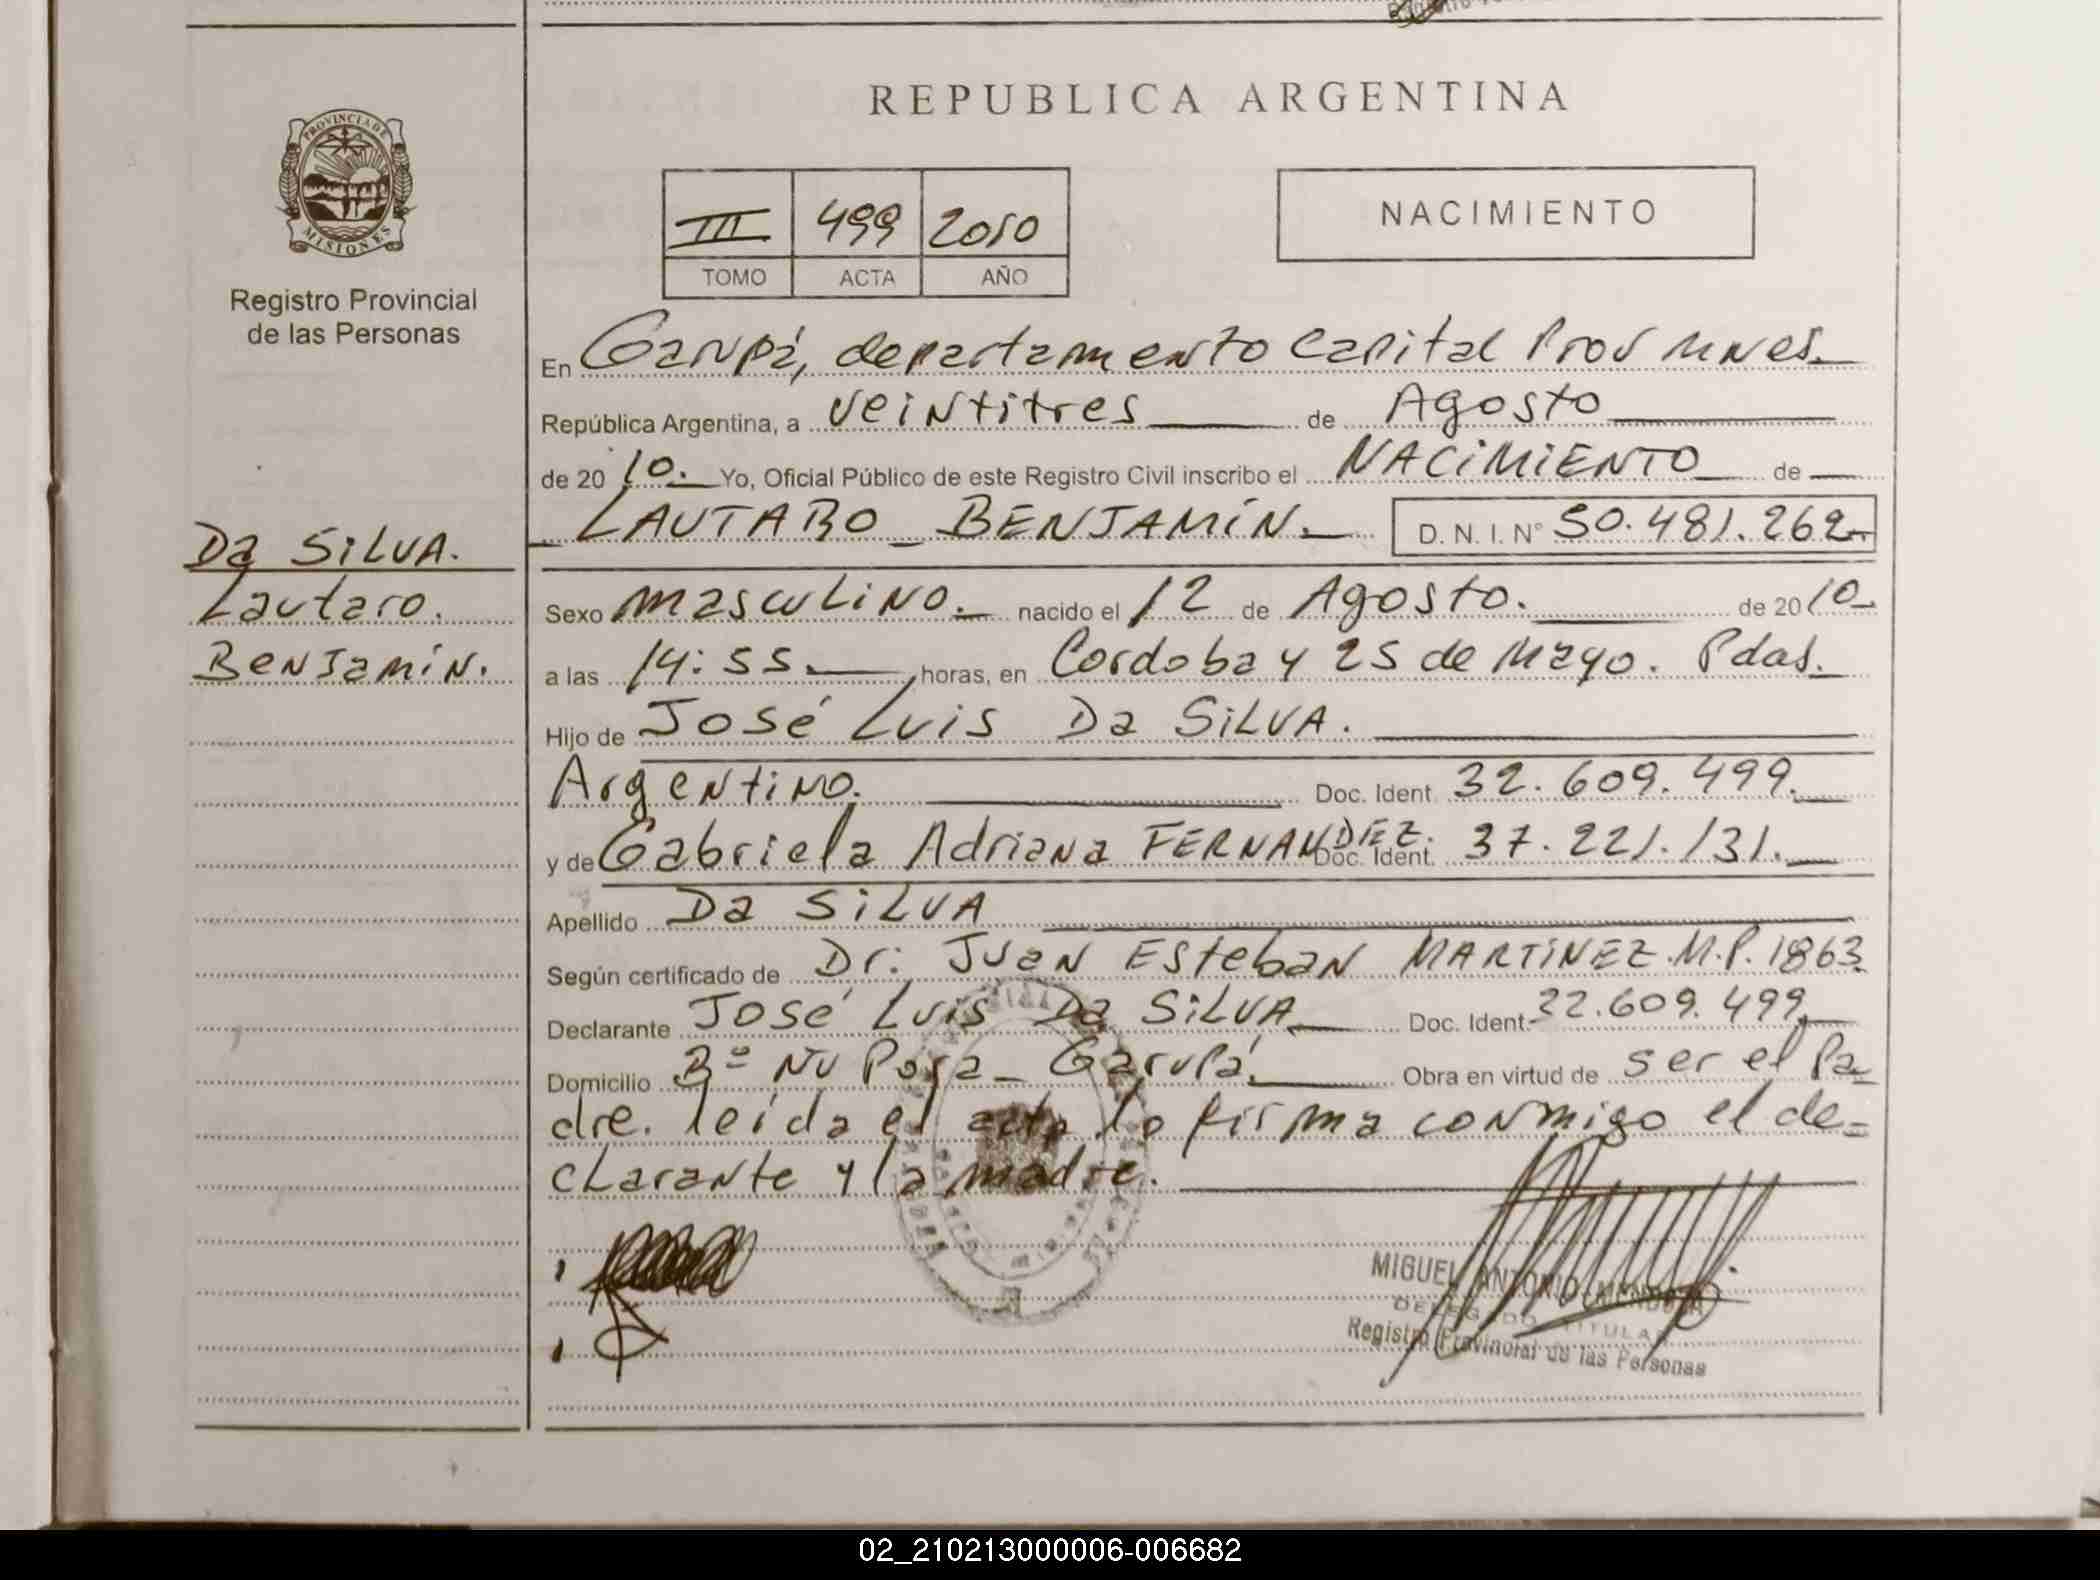 REPUBLICA ARGENTINA
PROVINCIA DE
MISIONES
Registro Provincial
de las Personas
III 499 2010
TOMO ACTA AÑO
NACIMIENTO
En Garupá, departamento Capital Prov Mnes.
República Argentina, a veintitres de Agosto
de 20 10. Yo, Oficial Público de este Registro Civil inscribo el NACIMIENTO de
LAUTARO BENJAMÍN. D. N. I. N° 50.481.262
Da SILVA.
Lautaro.
Benjamín.
Sexo masculino. nacido el 12 de Agosto. de 20 10
a las 14:55. horas, en Cordoba y 25 de Mayo. Pdas.
Hijo de José Luis Da SILVA.
Argentino. Doc. Ident. 32.609.499.
y de Gabriela Adriana FERNANDEZ. Doc. Ident. 37.221.131.
Apellido Da SILVA
Según certificado de Dr: Juan Esteban MARTINEZ.M.P. 1863.
Declarante José Luis Da SILVA Doc. Ident. 32.609.499
Domicilio B° Ñu Pora - Garupá. Obra en virtud de ser el Pa-
dre. leída el acta lo firma conmigo el de-
clarante y la madre.
MIGUEL ANTONIO MENDOZA
DELEGADO TITULAR
Registro Provincial de las Personas
02_210213000006-006682